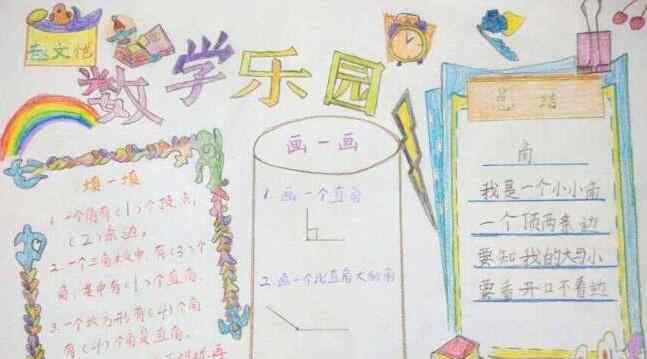 数学乐园
填一填
1.一个角有(1)个顶点,
(2)条边。
2.一个三角板中,有(3)个
角,其中有(1)个直角。
3.一个长方形有(4)个角
有(4)个角是直角。
画一画
1.画一个直角
2.画一个比直角大的角
总结
角
我是一个小小角
一个顶两条边
要知我的大与小
要看开口不看边